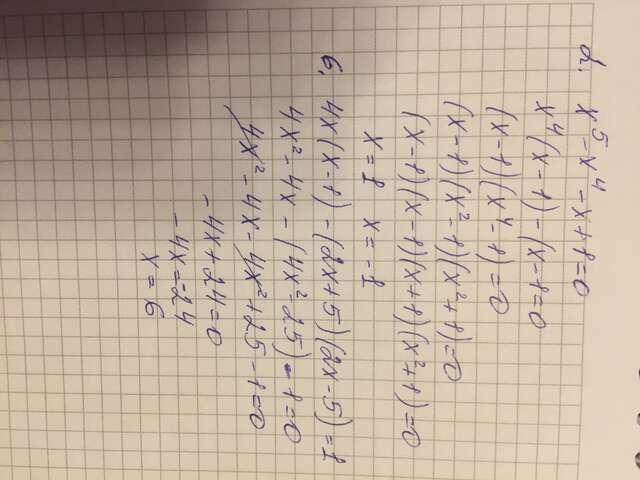 2. x⁵ - x⁴ - x + 1 = 0
x⁴(x - 1) - (x - 1 = 0
(x - 1)(x⁴ - 1) = 0
(x - 1)(x² - 1)(x² + 1) = 0
(x - 1)(x - 1)(x + 1)(x² + 1) = 0
x = 1 x = -1
6. 4x(x - 1) - (2x + 5)(2x - 5) = 1
4x² - 4x - (4x² - 25) - 1 = 0
4x² - 4x - 4x² + 25 - 1 = 0
-4x + 24 = 0
-4x = -24
x = 6